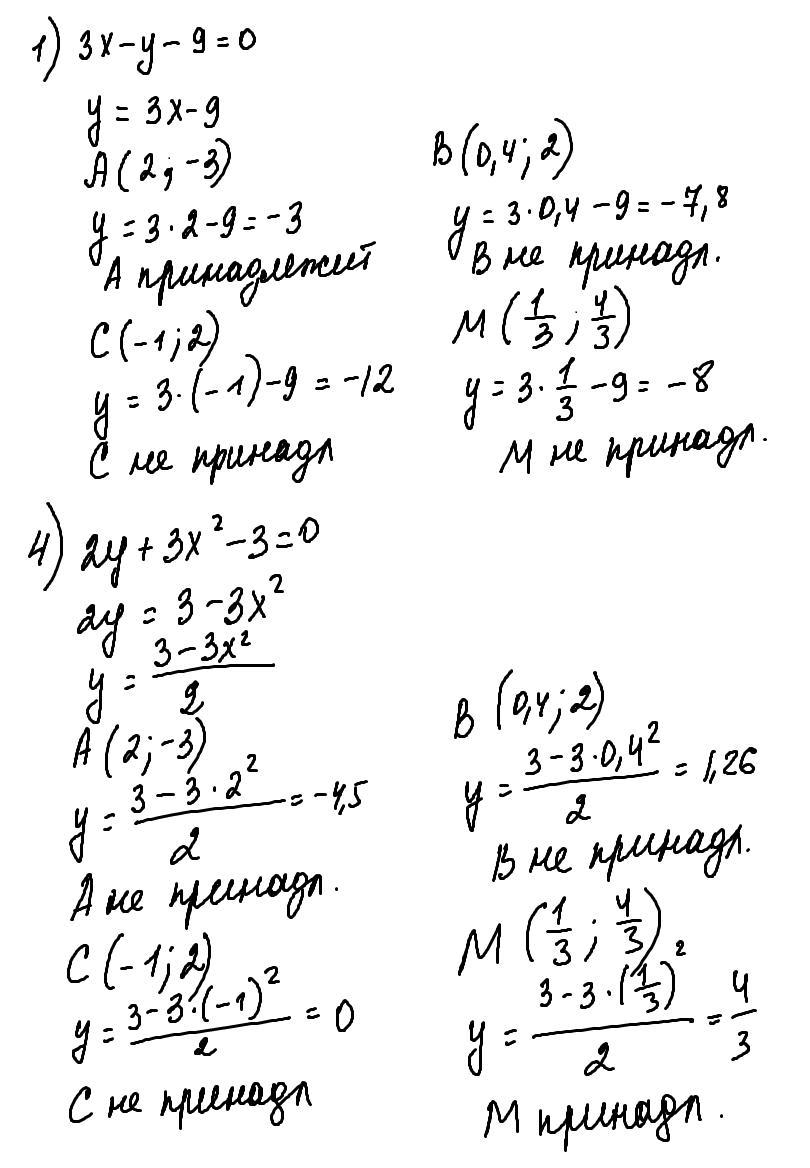 1) 3x - y - 9 = 0
y = 3x - 9
A (2; -3)
y = 3 · 2 - 9 = -3
A принадлежит
B (0,4; 2)
y = 3 · 0,4 - 9 = -7,8
B не принадл.
C (-1; 2)
y = 3 · (-1) - 9 = -12
C не принадл
M (1/3; 4/3)
y = 3 · 1/3 - 9 = -8
M не принадл.
4) 2y + 3x² - 3 = 0
2y = 3 - 3x²
y = (3 - 3x²)/2
A (2; -3)
y = (3 - 3 · 2²)/2 = -4,5
A не принадл.
B (0,4; 2)
y = (3 - 3 · 0,4²)/2 = 1,26
B не принадл.
C (-1; 2)
y = (3 - 3 · (-1)²)/2 = 0
C не принадл
M (1/3; 4/3)
y = (3 - 3 · (1/3)²)/2 = 4/3
M принадл.